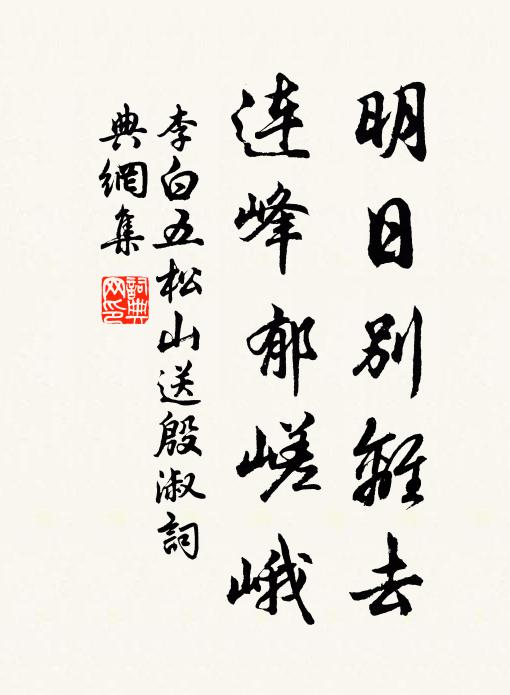 明日别離去
連峰郁嵯峨
李白五松山送殷淑詞
典網集
詞典
网印